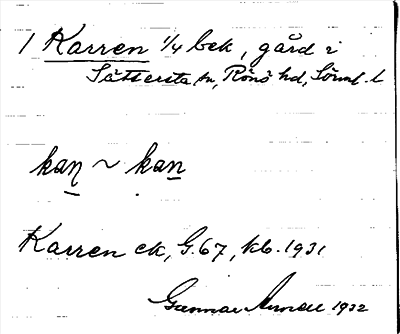 1 Karren 1/4 bek, gård i
Sättersta sn, Rönö hd, Sörml. l.
kaņ ~ kan
Karren ek, G. 67, kb. 1931
Gunnar 1932